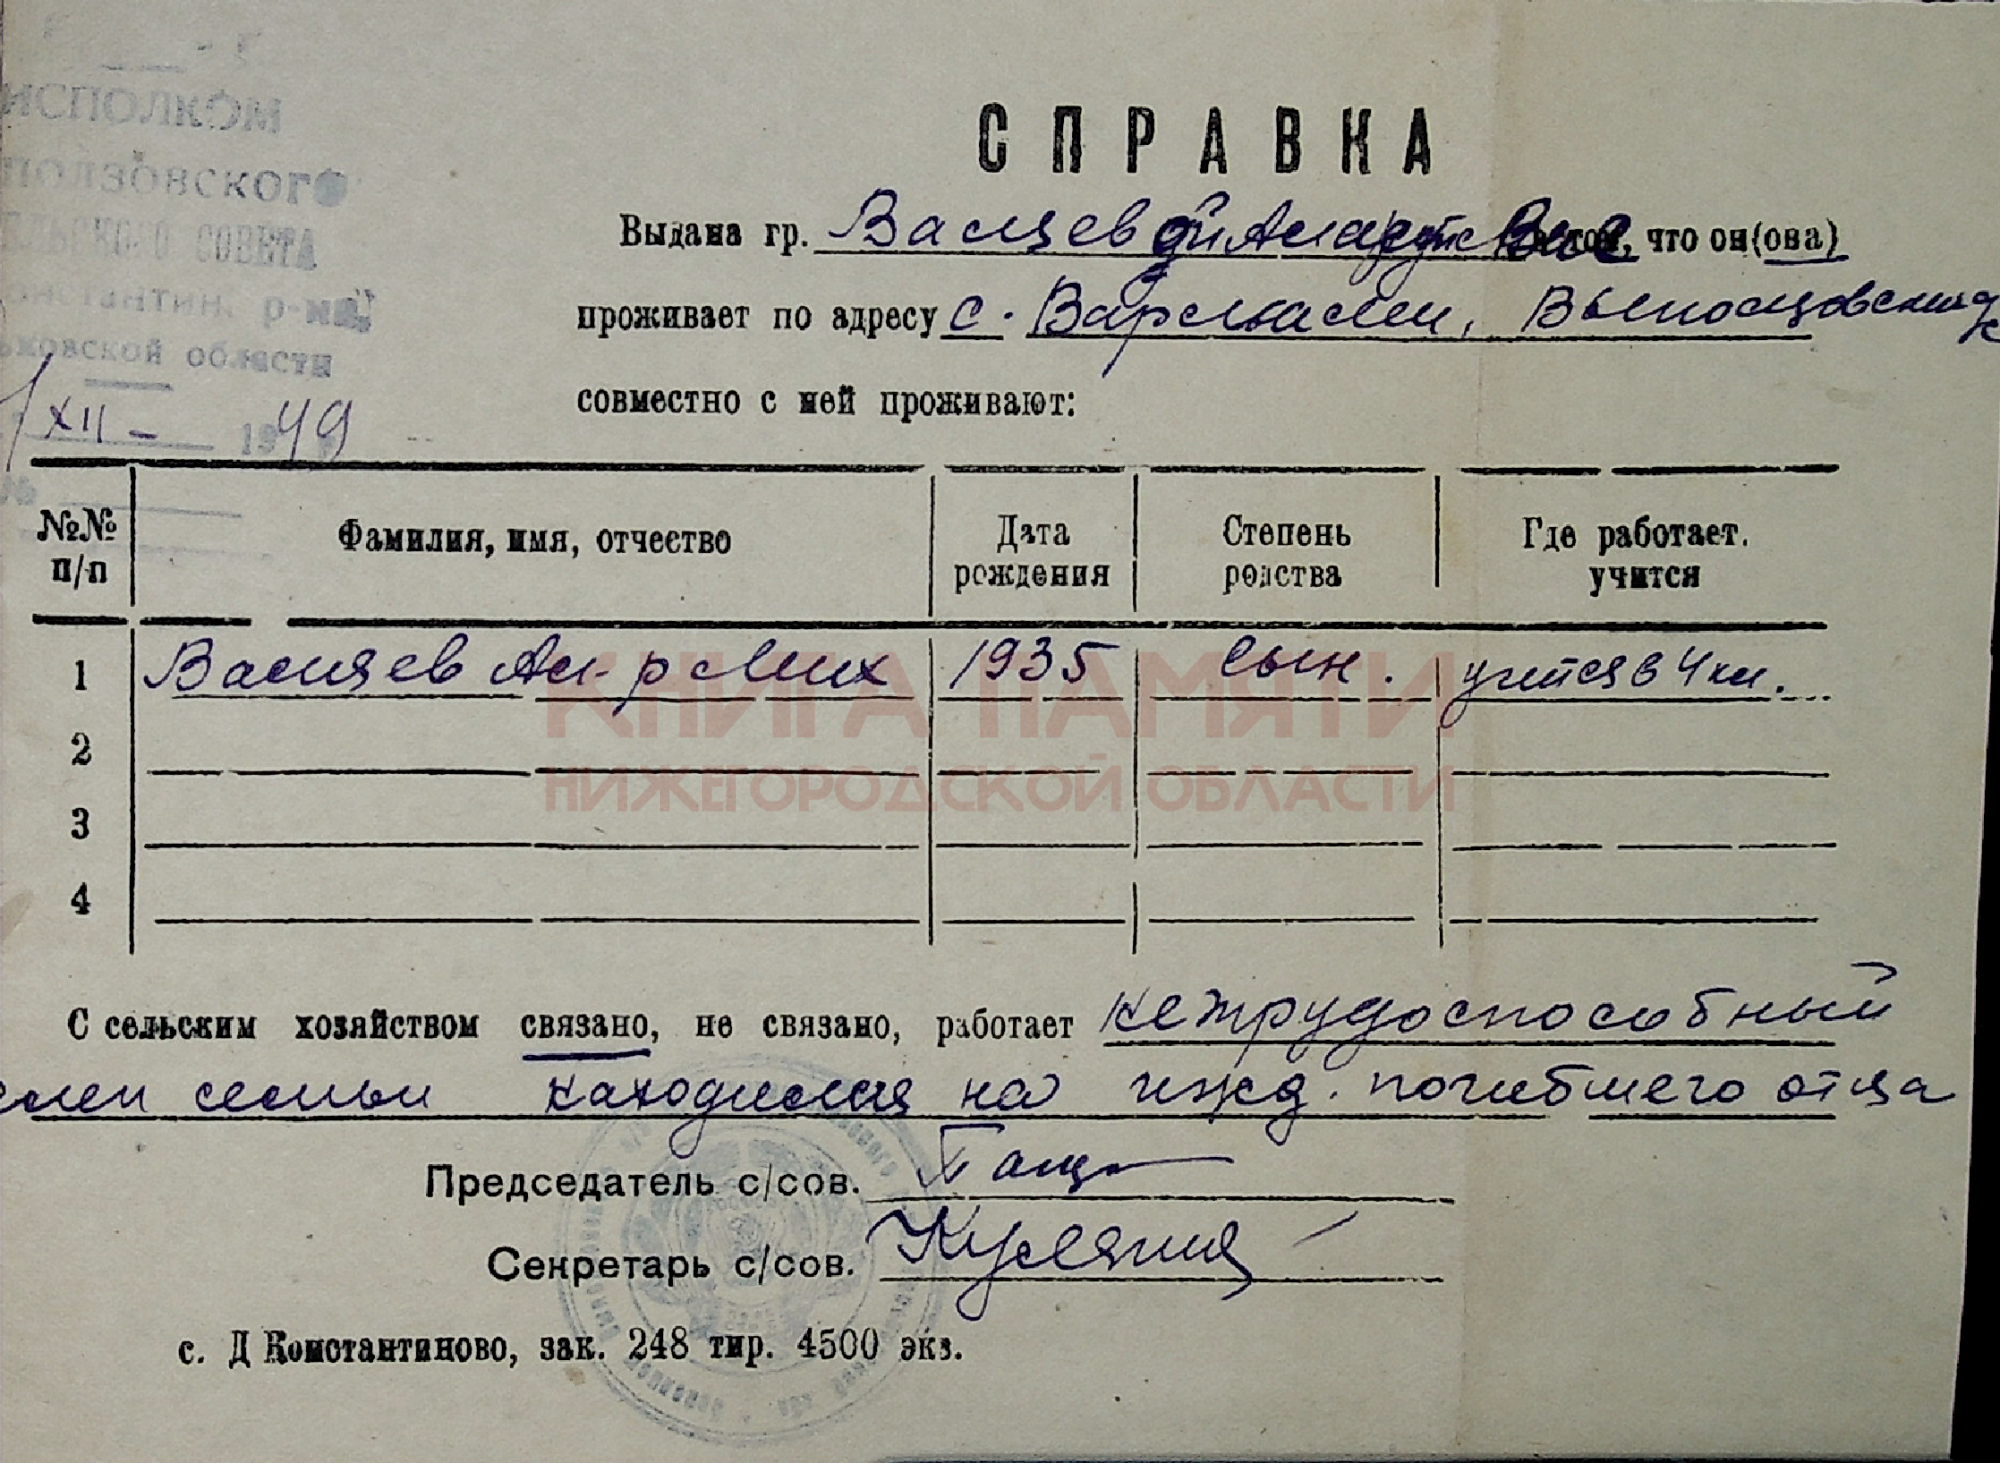 ИСПОЛКОМ
ползовского
СОВЕТА
р-на
области
XII - 1949
СПРАВКА
Выдана гр. что он(она)
проживает по адресу с.
совместно с ней проживают:
№№ п/п Фамилия, имя, отчество Дата рождения Степень родства Где работает. учится
1 Ал-р Мих 1935 сын. учится в 4 кл.
2
3
4
КНИГА ПАМЯТИ
НИЖЕГОРОДСКОЙ ОБЛАСТИ
С сельским хозяйством связано, не связано, работает нетрудоспособный
член семьи находился на ижд. погибшего отца
Председатель с/сов.
Секретарь с/сов.
с. Д Константиново, зак. 248 тир. 4500 экз.